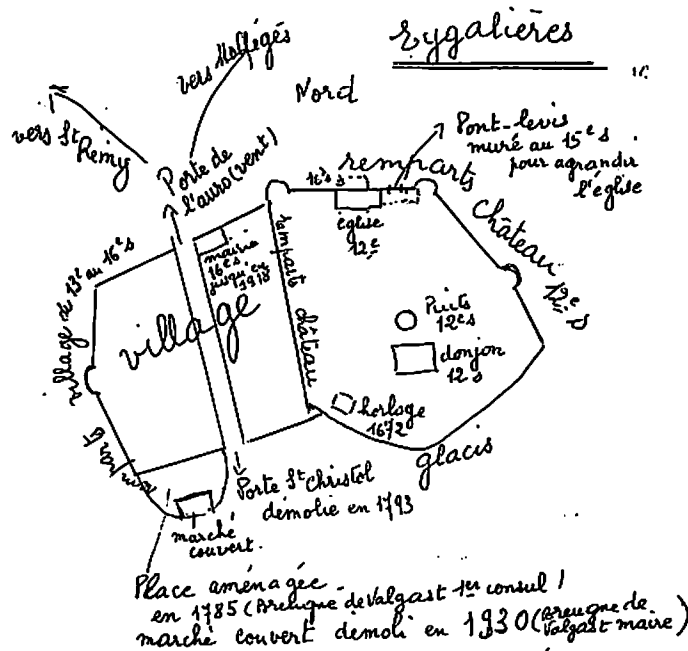 Eygalières
vers Mollégès
Nord
vers St Rémy
Porte de
l'auro (vent)
Pont-levis
muré au 15e s
pour agrandir
l'église
remparts
16e s
église
12e
château 12e s
mairie
16e s
jusqu'en
village de 13e au 16e s
village
remparts château
Puits
12e s
donjon
12 s
horloge
1672
glacis
remparts
Porte St Christol
démolie en 1793
marché
couvert.
Place aménagée
en 1785 (Areugne de Valgast 1er consul)
marché couvert démoli en 1930 (Areugne de
Valgast maire)